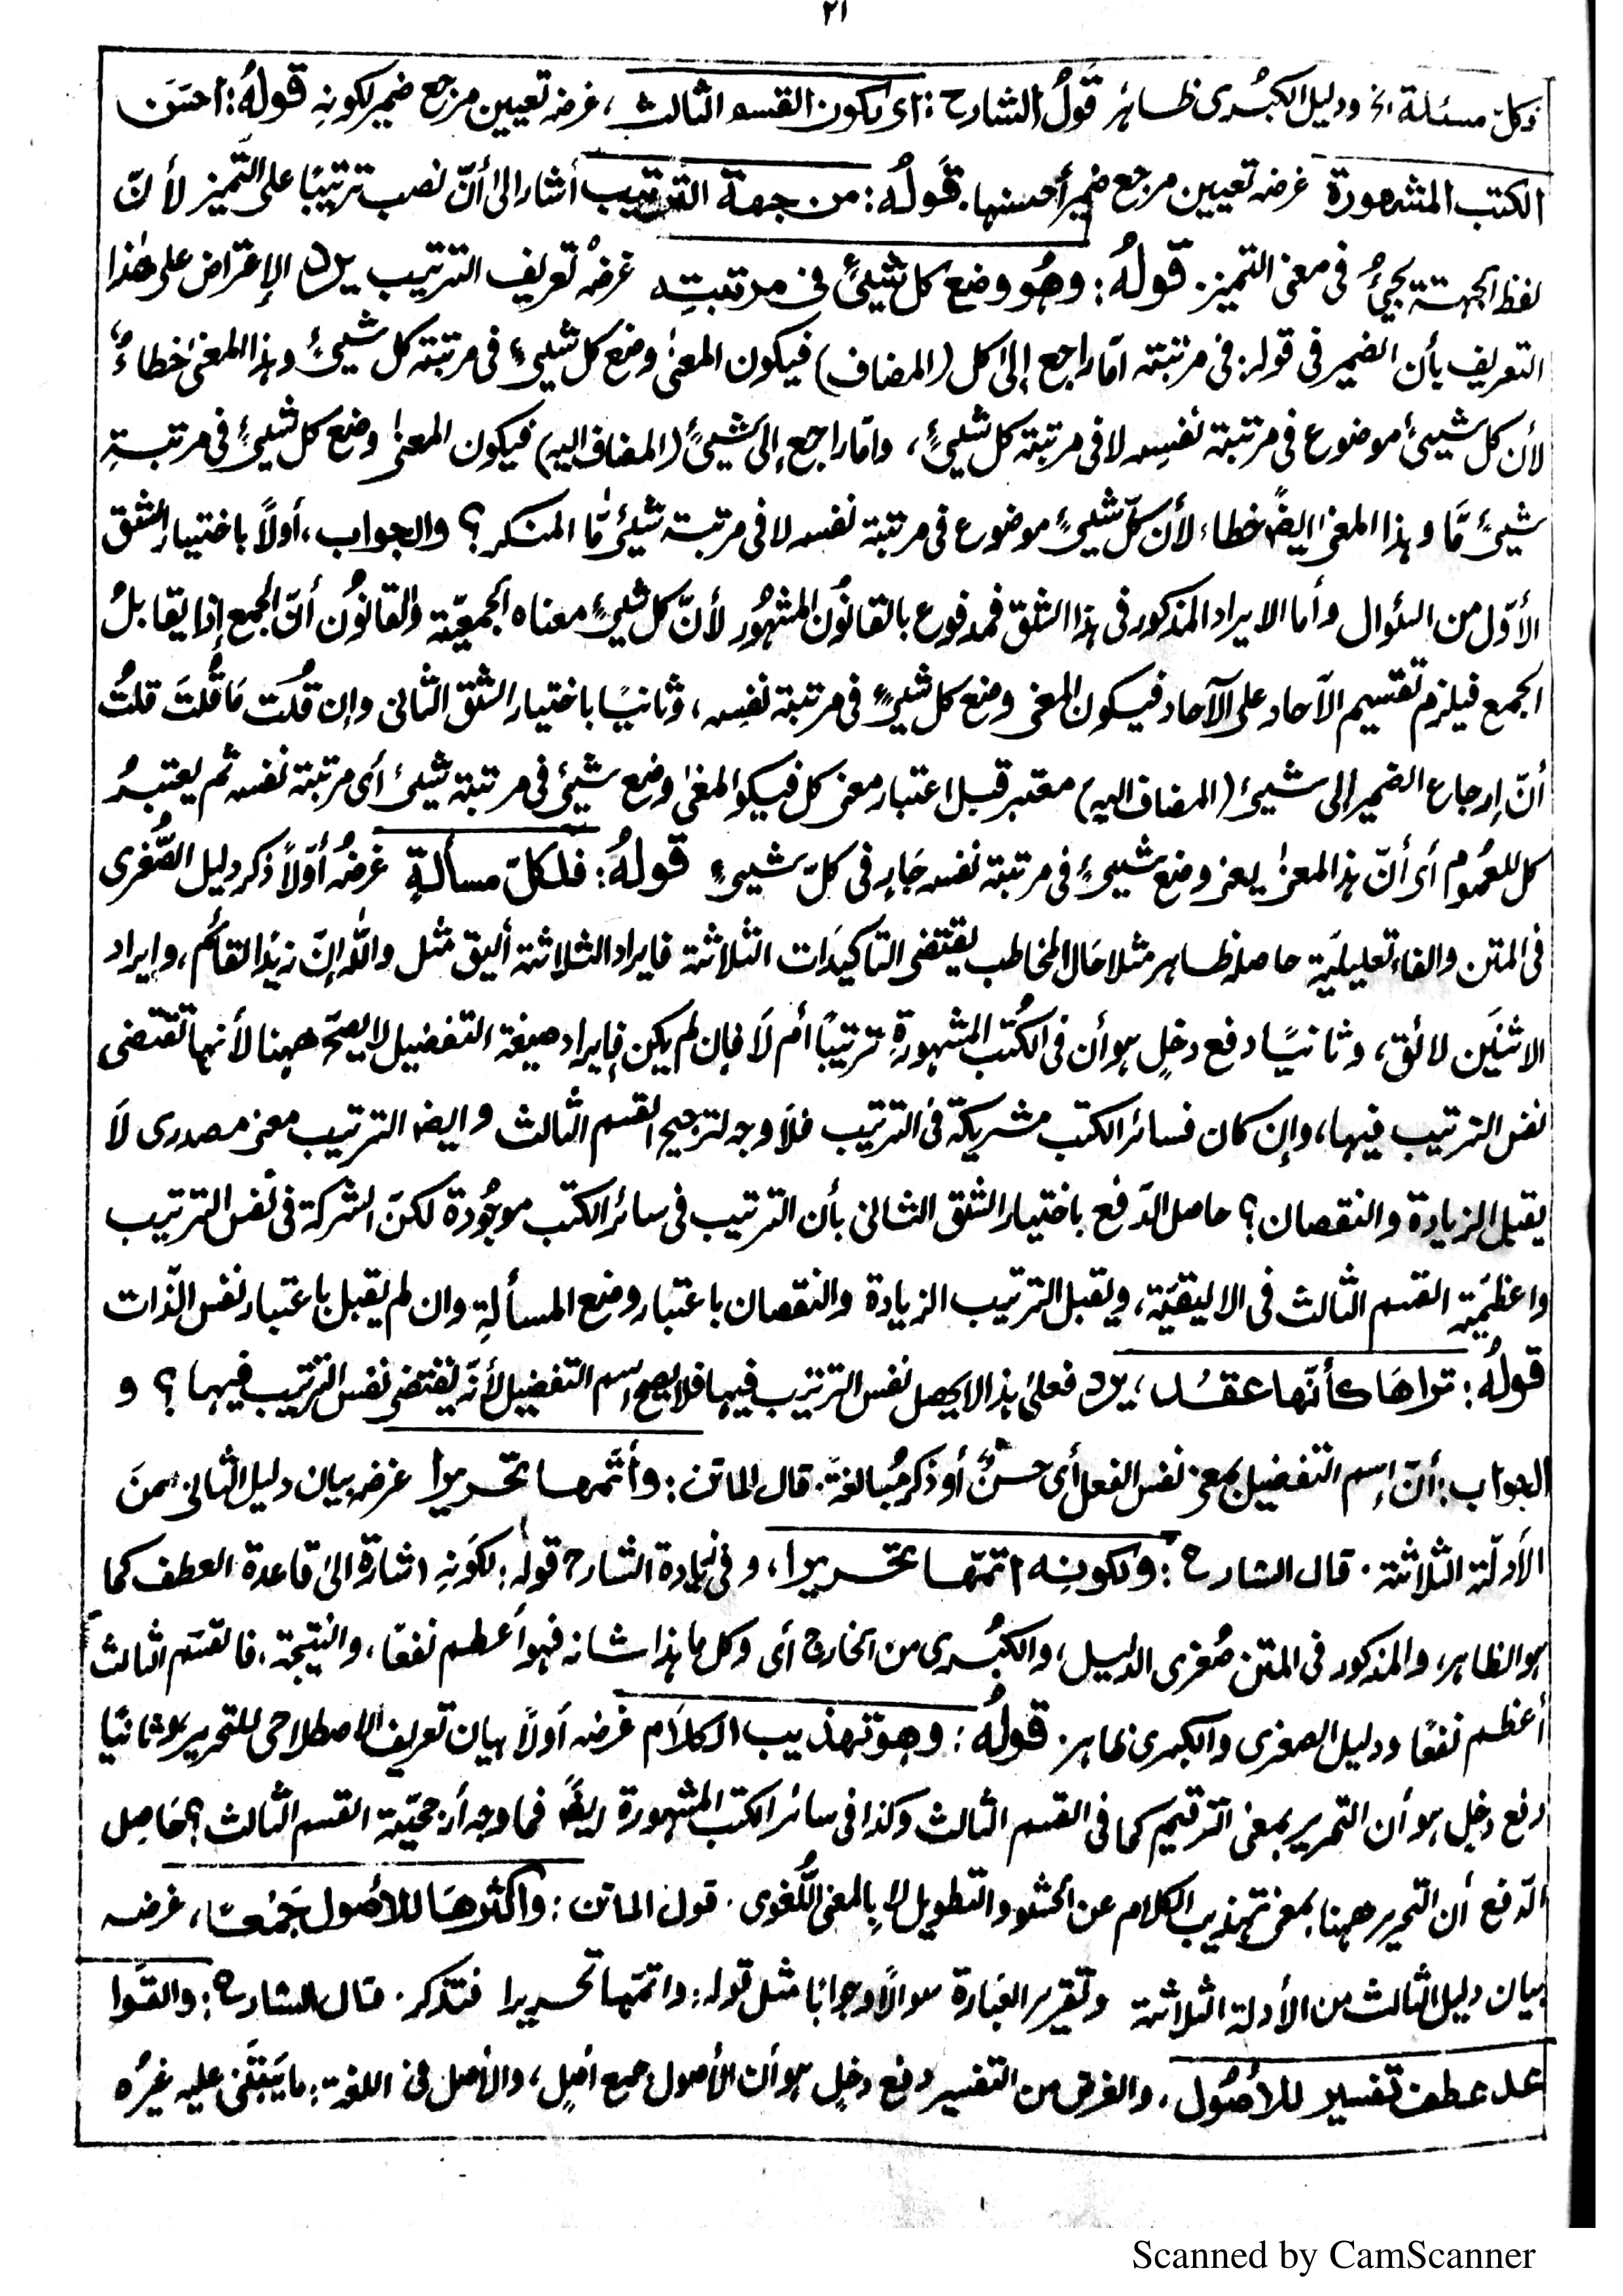 ٢١
فلكلّ مسئلة الخ ودليل الكبُرى ظاهر قولُ الشارح: اى لكون القسم الثالث، غرضه تعيين مرجع ضمير لكونهِ قولهُ: احسَن
الكتب المشهورة غرضه تعيين مرجع ضمير أحسنها. قَولُه: من جهة الترتيب أشار الى أنّ نصب ترتيبًا على التَّميز لأنّ
لفظ الجهة يجئُ فى معنى التميز. قَولهُ: وهُو وضع كل شيئٍ فى مرتبتِه غرضُ تعريف الترتيب يرد الإعتراض على هٰذا
التعريف بأن الضمير فى قوله: فى مرتبته امّا راجع إلى كل (المضاف) فيكون المعنىٰ وضع كل شيئٍ فى مرتبته كل شيئٍ وهذا المعنىٰ خطاءٌ
لأن كل شيئٍ موضوع فى مرتبة نفسِه لا فى مرتبة كل شيئٍ، وامّا راجع إلى شيئٍ (المضاف اليه) فيكون المعنىٰ وضع كل شيئٍ فى مرتبةِ
شيئٍ مّا وهذا المعنى ايضًا خطاء، لأن كلّ شيئٍ موضوع فى مرتبة نفسه لا فى مرتبة شيئٍ مّا المنكر؟ والجواب، أولاً باختيار الشق
الأوّل من السئوال وأما الايراد المذكور فى هذا الشق فمدفوع بالقانُون المشهُور لأنّ كل شيئٍ معناه الجمعيّة والقانُون أنّ الجمع إذا يقابلُ
الجمع فيلزم تقسيم الآحاد على الآحاد فيكون المعنى وضع كل شيئٍ فى مرتبة نفسِه، وثانيًا باختيار الشق الثانى وإن قُلتَ مَا قُلتَ قلتُ
أنّ إرجاع الضمير الى شيئ (المضاف اليه) معتبر قبل اعتبار معنى كل فيكو المعنىٰ وضع شيئٍ فى مرتبة شيئٍ أى مرتبة نفسه ثم يعتبرُ
كل للعمُوم أى أنّ هذا المعنىٰ يعنى وضع شيئٍ فى مرتبة نفسه جَارٍ فى كلّ شيئٍ قولهُ: فلكلّ مسألةٍ غرضُه أوّلاً ذكر دليل الصُّغرى
فى المتن والفاء تعليليّة حاصله ظاهر مثلا حَال المخاطب يقتضى التاكيدَات الثلاثة فايراد الثلاثة أليق مثل واللّٰه إنّ زيدًا لقائم، وايراد
الاثنَين لائق، وثانيًا دفع دخلٍ هو أن فى الكُتب المشهورةِ ترتيبًا أم لَا فإن لم يكن فإيراد صيغة التفضيل لا يصحّ ههنا لأنها تقتضى
نفس الترتيب فيها، وإن كان فسائر الكتب مشريكة فى الترتيب فلَا وجه لترجيح القسم الثالث وايضا الترتيب معنى مصدرى لَا
يقبل الزيادة والنقصان؟ حاصل الدّفع باختيار الشق الثانى بأن الترتيب فى سائر الكتب موجُودة لكنّ الشركة فى نفس الترتيب
واعظميّة القسم الثالث فى الاليقيّة، ويقبل الترتيب الزيادة والنقصان باعتبار وضع المسألةِ وان لم يقبل باعتبار نفس الذّات
قولُه: تراهَا كأنّها عقدُ، يرد فعلىٰ هذا لا يحصل نفس الترتيب فيها فلا يصح اسم التفضيل لأنّه يقتضى نفس الترتيب فيها؟ و
الجواب: أنّ إسم التفضيل بمعنى نفس الفعل أى حسنٌ أو ذكر مُبالغةً. قال الماتن: وأتمّها تحريرا غرضه بيان دليل الثانى من
الأدلّة الثلاثة. قال الشارح: ولكونِه اتمّها تحريرا، وفى زيادة الشارح قوله: لكَونهِ اشارة الىٰ قاعدة العطف كما
هو الظاهر، والمذكور فى المتن صُغرى الدليل، والكُبرى من الخارج أى وكل ما هذا شانه فهو أعظم نفعًا، والنتيجة، فالقسم الثالث
أعظم نفعًا ودليل الصغرى والكبرى ظاهر. قولُه: وهو تهذيب الكلَام غرضه أولًا بيان تعريف الاصطلاحى للتحرير وثانيًا
دفع دخلٍ هو أن التحرير بمعنى الترقيم كما فى القسم الثالث وكذا فى سائر الكتب المشهورة ايضًا فما وجه أرجحيّة القسم الثالث؟ حَاصِل
الدّفع أن التحرير ههنا بمعنى تهذيب الكلام عن الحشو والتطويل لا بالمعنى اللُّغوى. قول الماتن: واكثرهَا للأصُول جَمعًا، غرضه
بيان دليل الثالث من الأدلة الثلاثة وتقرير العبَارة سوالًا وجوابًا مثل قوله: واتمّها تحريرا فتذكر. قال الشارح: والقوا
عد عطف تفسير للأصُول. والغرض من التفسير دفع دخلٍ هو أن الأصول جمع اصلٍ، والأصل فى اللغة: ما يَبتَنى عليه غيرُه
Scanned by CamScanner